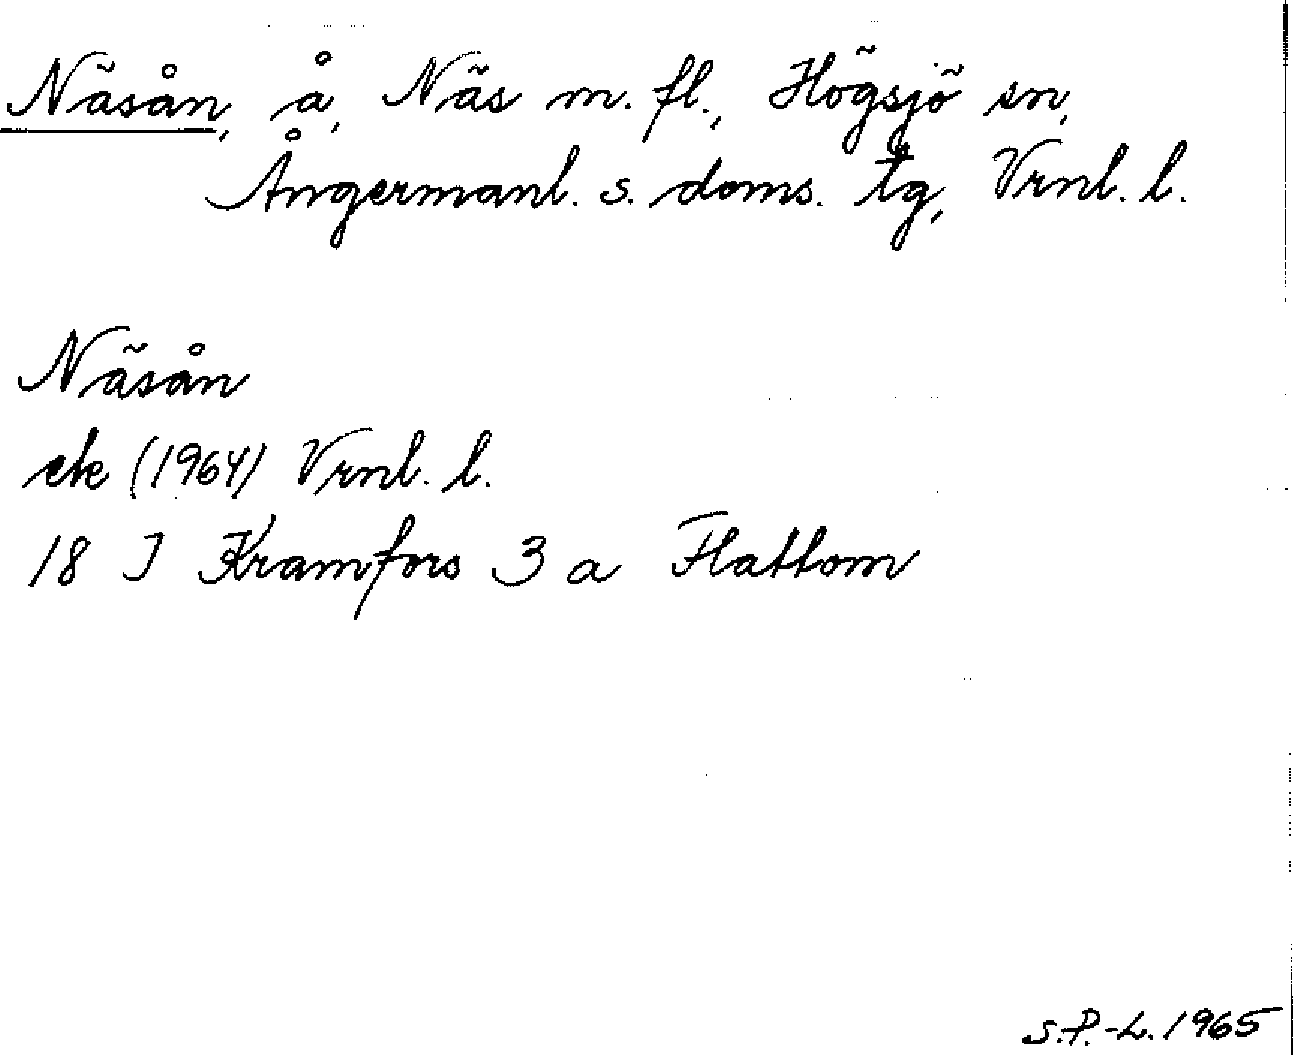 Näsån, å, Näs m. fl., Högsjö sn,
Ångermanl. s. doms. tg, Vrnl. l.
Näsån
ek (1964) Vrnl. l.
18 I Kramfors 3 a Flattom
S.P.-L. 1965